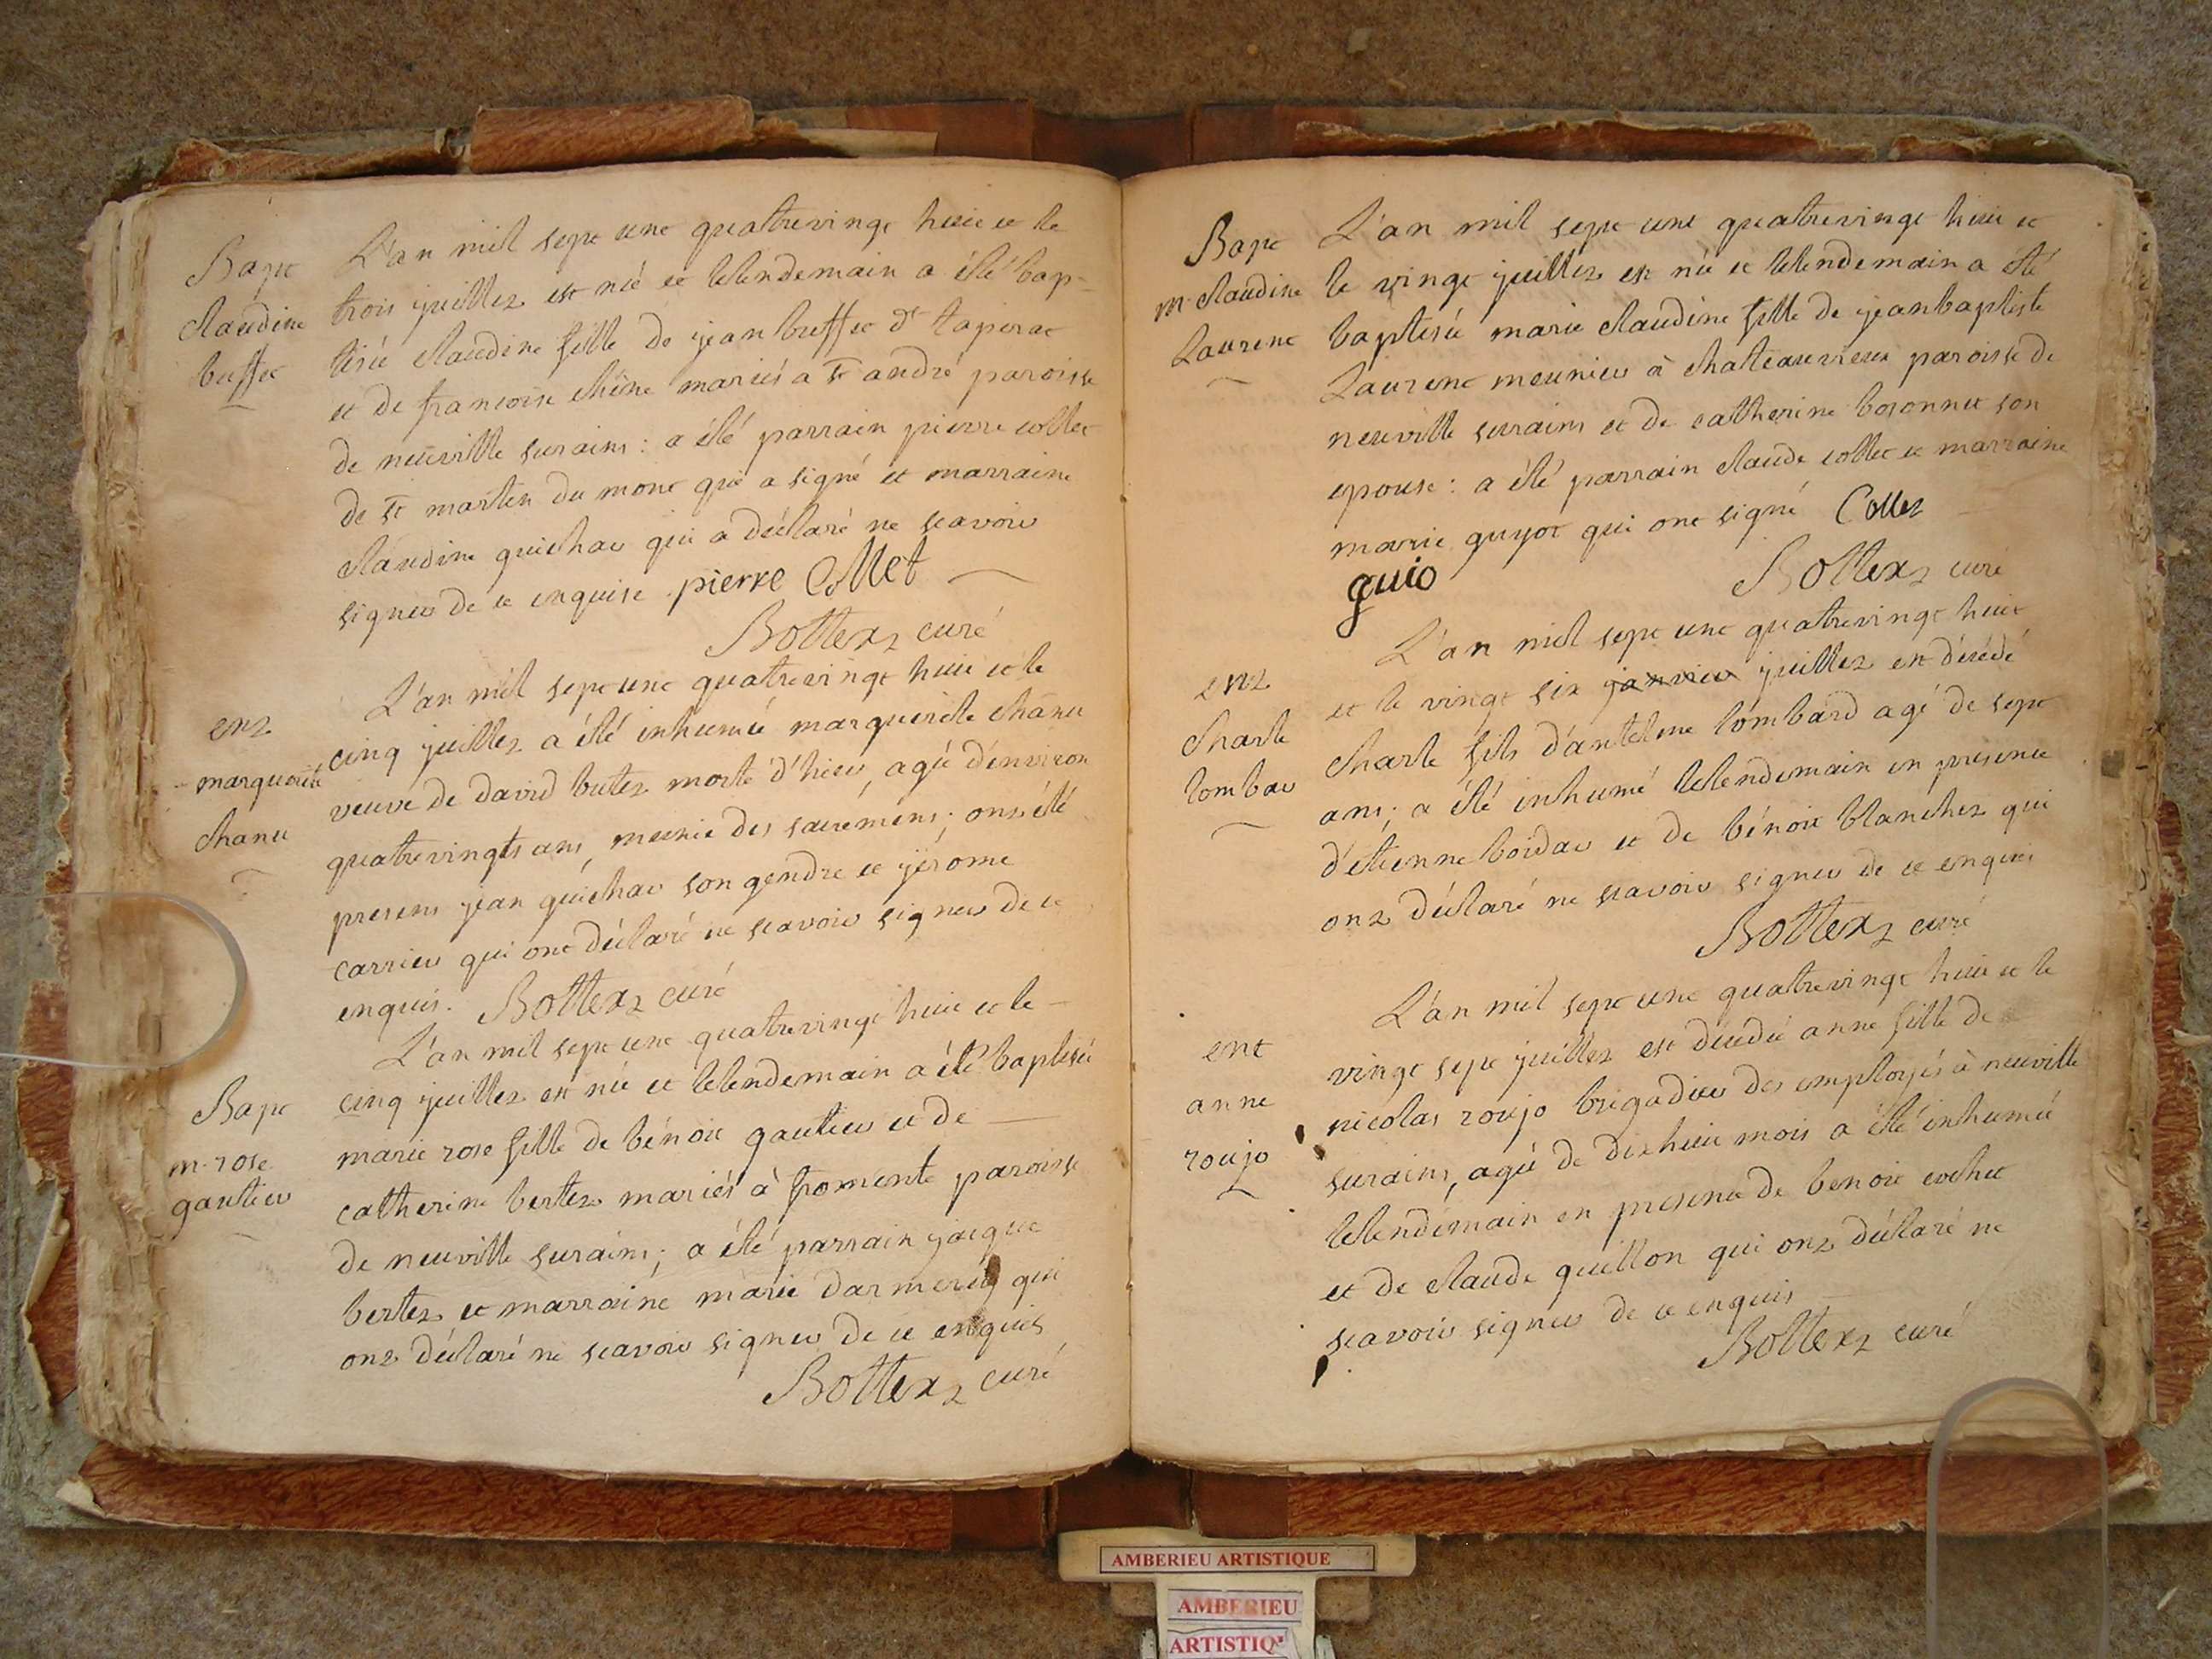 Bapt
claudine
buffet
L'an mil sept cent quatrevingt huit et le
trois juillet est née et lelendemain a été bap-
tisée claudine fille de jean buffet dt laperat
et de francoise chêne mariés a St andré paroisse
de neuville surains : a été parrain pierre collet
de St martin du mont qui a signé et marraine
claudine guichar qui a déclaré ne scavoir
signer de ce enquise . pierre Collet
Bottex curé
ent
marguerite
chanu
L'an mil sept cent quatrevingt huit et le
cinq juillet a été inhumée marguerite chanu
veuve de david butet morte d'hier, agée d'environ
quatrevingts ans, munie des sacremens ; ont été
presens jean guichar son gendre et jérome
carrier qui ont déclaré ne scavoir signer de ce
enquis. Bottex curé
Bapt
m. rose
gautier
L'an mil sept cent quatrevingt huit et le
cinq juillet est née et lelendemain a été baptisée
marie rose fille de bénoit gautier et de
catherine bertet mariés à fromente paroisse
de neuville surains ; a été parrain jacque
bertet et marraine marie darmeruy qui
ont déclaré ne scavoir signer de ce enquis
Bottex curé
Bapt
m. claudine
Laurent
L'an mil sept cent quatrevingt huit et
le vingt juillet est née et lelendemain a été
baptisée marie claudine fille de jeanbaptiste
Laurent meunier à chateauvieux paroisse de
neuville surains et de catherine boronnet son
epouse : a été parrain claude collet et marraine
marie guyot qui ont signé Collet
guio
Bottex curé
ent
charle
lombar
L'an mil sept cent quatrevingt huit
et le vingt six janvier juillet est décédé
charle fils d'antelme lombard agé de sept
ans ; a été inhumé lelendemain en presence
d'étienne boidar et de bénoit blanchet qui
ont déclaré ne scavoir signer de ce enquis
Bottex curé
ent
anne
roujo
L'an mil sept cent quatrevingt huit et le
vingt sept juillet est décédée anne fille de
nicolas roujo brigadier des employés à neuville
surains, agée de dixhuit mois a été inhumée
lelendemain en presence de benoit cochet
et de claude guillon qui ont déclaré ne
scavoir signer de ce enquis
Bottex curé
AMBERIEU ARTISTIQUE
AMBERIEU
ARTISTIQ